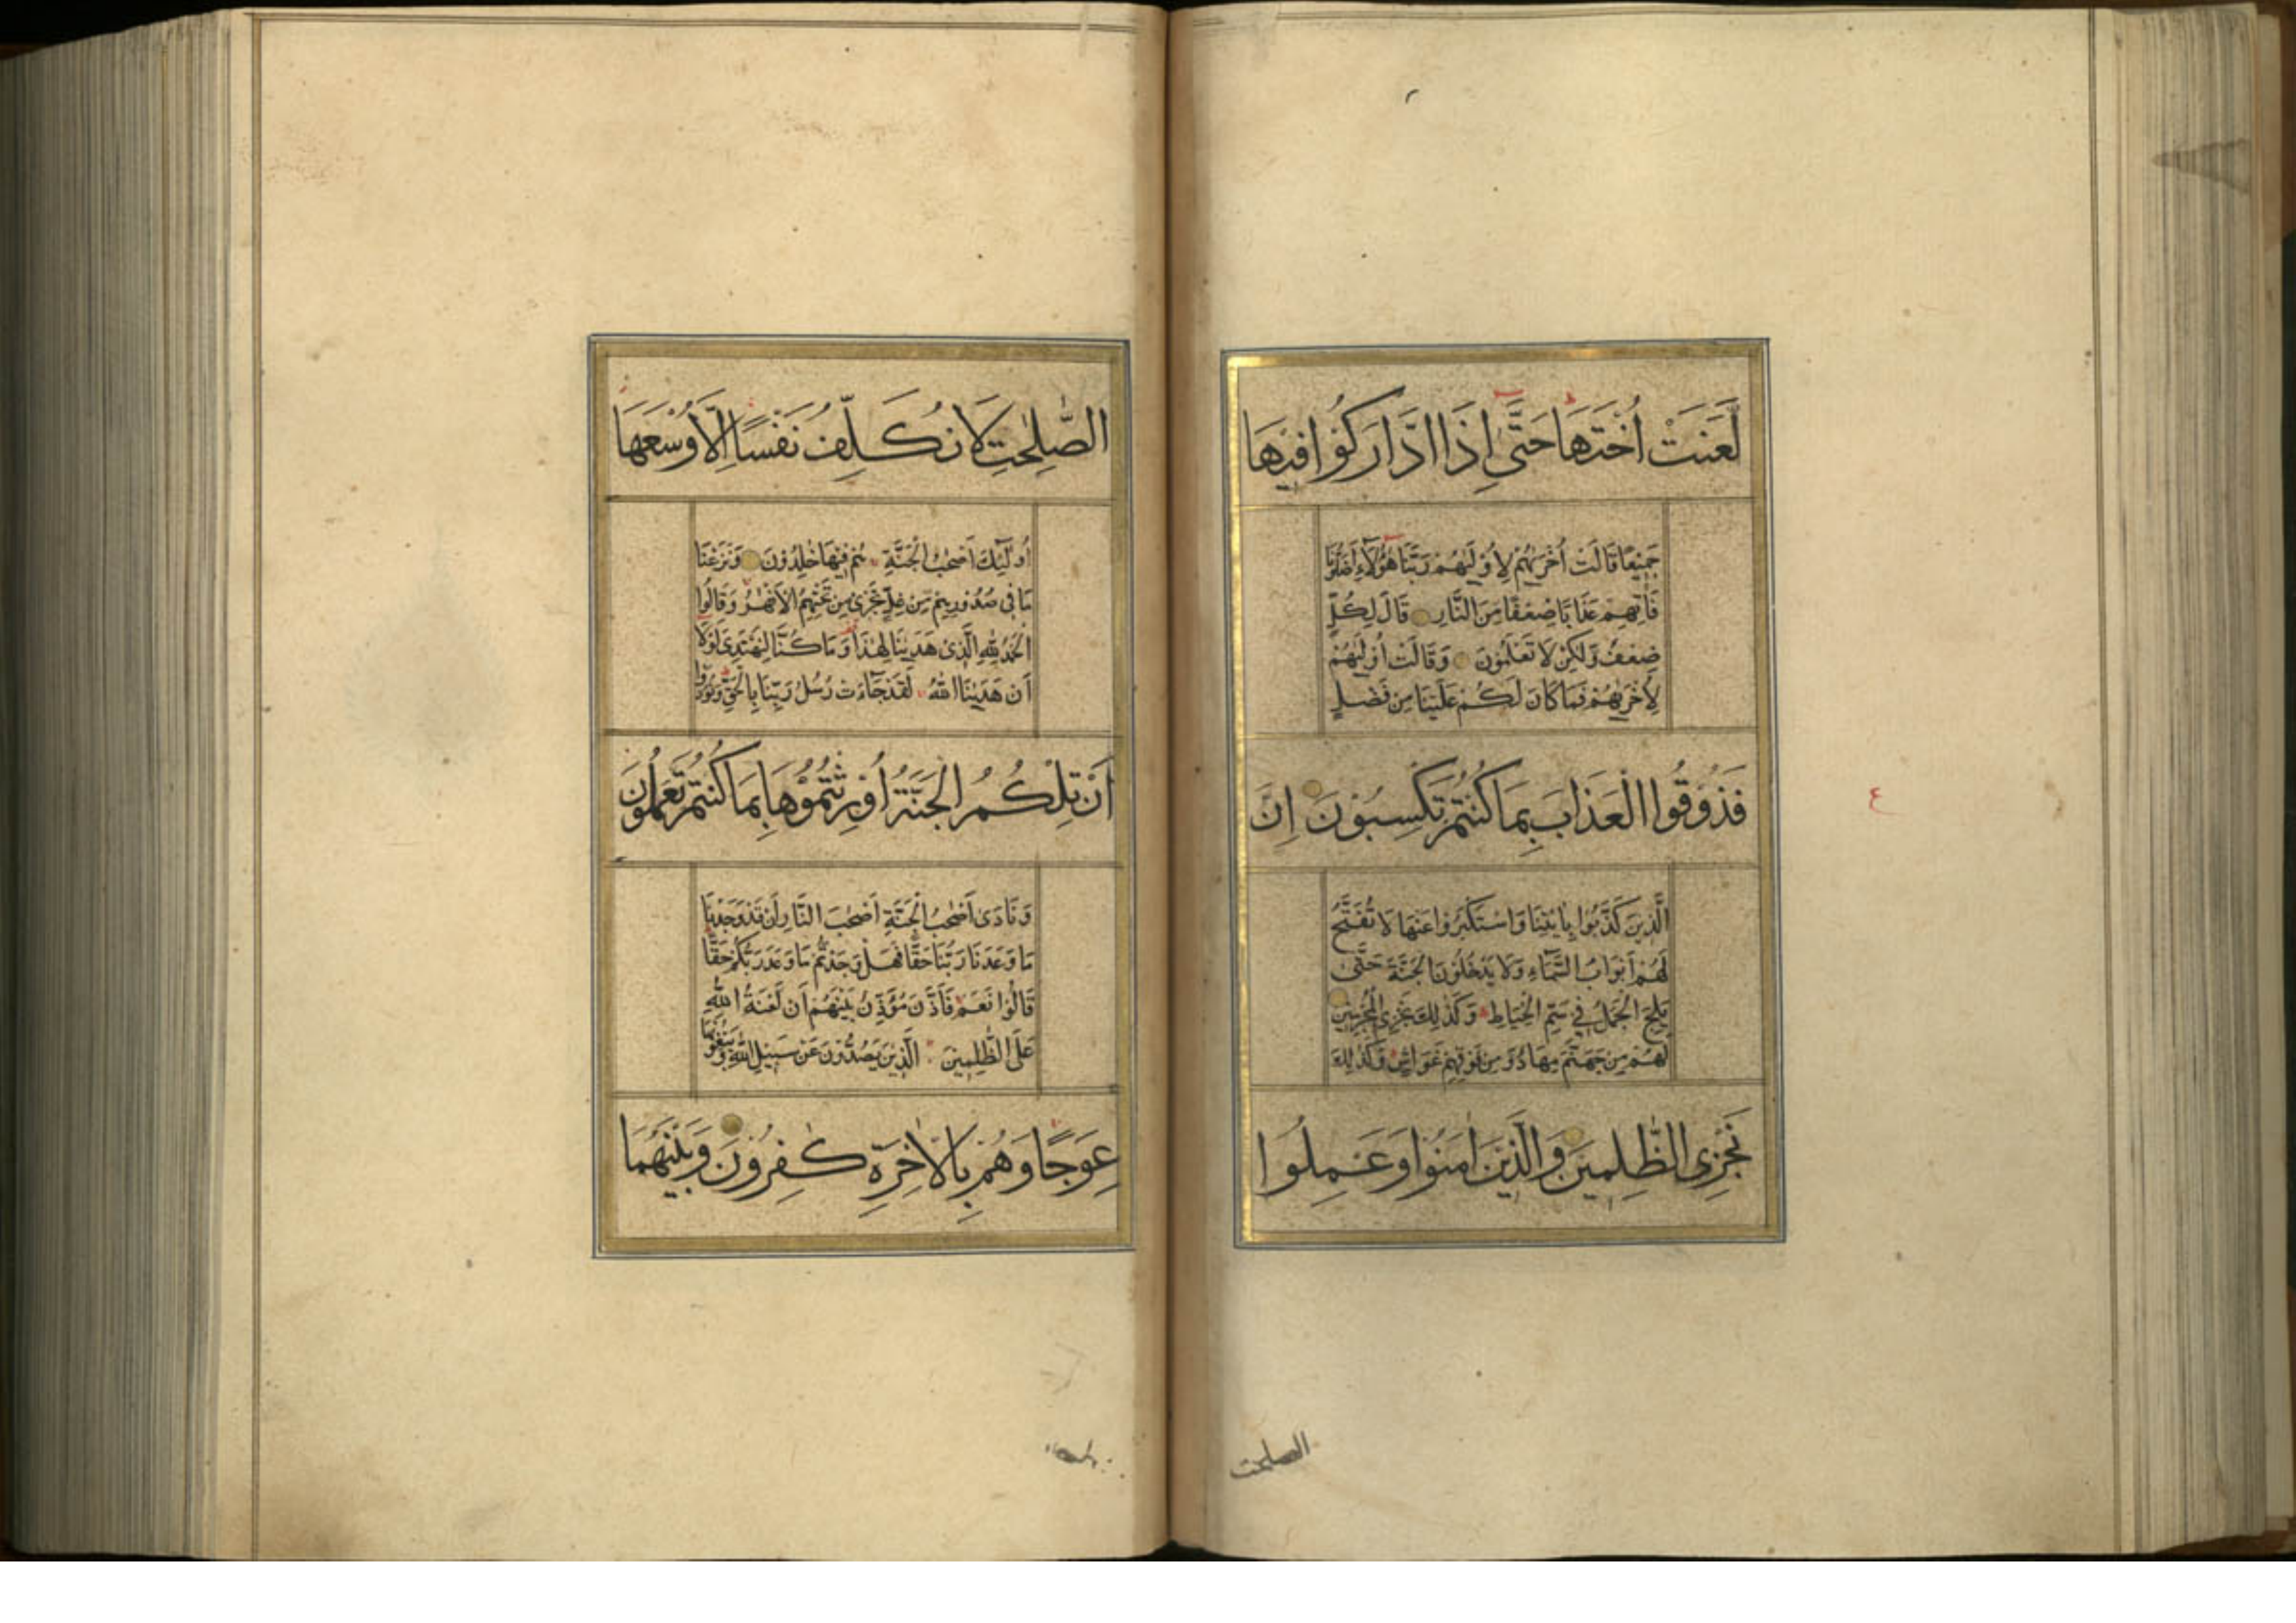 لَّعَنَتْ اُخْتَهَا حَتّٰى اِذَا ادَّارَكُوْا فِيْهَا
جَمِيْعًا قَالَتْ اُخْرٰىهُمْ لِاُوْلٰىهُمْ رَبَّنَا هٰٓؤُلَآءِ اَضَلُّوْنَا
فَاٰتِهِمْ عَذَابًا ضِعْفًا مِنَ النَّارِ قَالَ لِكُلٍّ
ضِعْفٌ وَّلٰكِنْ لَا تَعْلَمُوْنَ وَقَالَتْ اُوْلٰىهُمْ
لِاُخْرٰىهُمْ فَمَا كَانَ لَكُمْ عَلَيْنَا مِنْ فَضْلٍ
فَذُوْقُوا الْعَذَابَ بِمَا كُنْتُمْ تَكْسِبُوْنَ اِنَّ
الَّذِيْنَ كَذَّبُوْا بِاٰيٰتِنَا وَاسْتَكْبَرُوْا عَنْهَا لَا تُفَتَّحُ
لَهُمْ اَبْوَابُ السَّمَآءِ وَلَا يَدْخُلُوْنَ الْجَنَّةَ حَتّٰى
يَلِجَ الْجَمَلُ فِيْ سَمِّ الْخِيَاطِ وَكَذٰلِكَ نَجْزِى الْمُجْرِمِيْنَ
لَهُمْ مِنْ جَهَنَّمَ مِهَادٌ وَّمِنْ فَوْقِهِمْ غَوَاشٍ وَكَذٰلِكَ
نَجْزِى الظّٰلِمِيْنَ وَالَّذِيْنَ اٰمَنُوْا وَعَمِلُوا
الصلحت
ع
الصّٰلِحٰتِ لَا نُكَلِّفُ نَفْسًا اِلَّا وُسْعَهَا
اُولٰٓئِكَ اَصْحٰبُ الْجَنَّةِ هُمْ فِيْهَا خٰلِدُوْنَ وَنَزَعْنَا
مَا فِى صُدُوْرِهِمْ مِّنْ غِلٍّ تَجْرِىْ مِنْ تَحْتِهِمُ الْاَنْهٰرُ وَقَالُوا
الْحَمْدُ لِلّٰهِ الَّذِىْ هَدٰىنَا لِهٰذَا وَمَا كُنَّا لِنَهْتَدِىَ لَوْلَا
اَنْ هَدٰىنَا اللّٰهُ لَقَدْ جَآءَتْ رُسُلُ رَبِّنَا بِالْحَقِّ وَنُوْدُوْا
اَنْ تِلْكُمُ الْجَنَّةُ اُوْرِثْتُمُوْهَا بِمَا كُنْتُمْ تَعْمَلُوْنَ
وَنَادٰى اَصْحٰبُ الْجَنَّةِ اَصْحٰبَ النَّارِ اَنْ قَدْ وَجَدْنَا
مَا وَعَدَنَا رَبُّنَا حَقًّا فَهَلْ وَجَدْتُمْ مَا وَعَدَ رَبُّكُمْ حَقًّا
قَالُوْا نَعَمْ فَاَذَّنَ مُؤَذِّنٌ بَيْنَهُمْ اَنْ لَعْنَةُ اللّٰهِ
عَلَى الظّٰلِمِيْنَ الَّذِيْنَ يَصُدُّوْنَ عَنْ سَبِيْلِ اللّٰهِ وَيَبْغُوْنَهَا
عِوَجًا وَهُمْ بِالْاٰخِرَةِ كٰفِرُوْنَ وَبَيْنَهُمَا